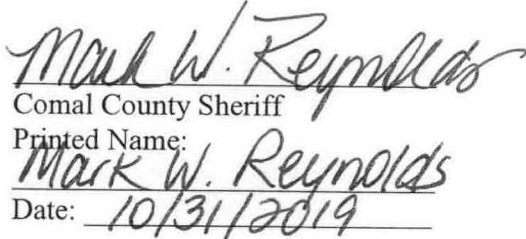 Mark W. Reynolds
Comal County Sheriff
Printed Name:
Mark W. Reynolds
Date: 10/31/2019